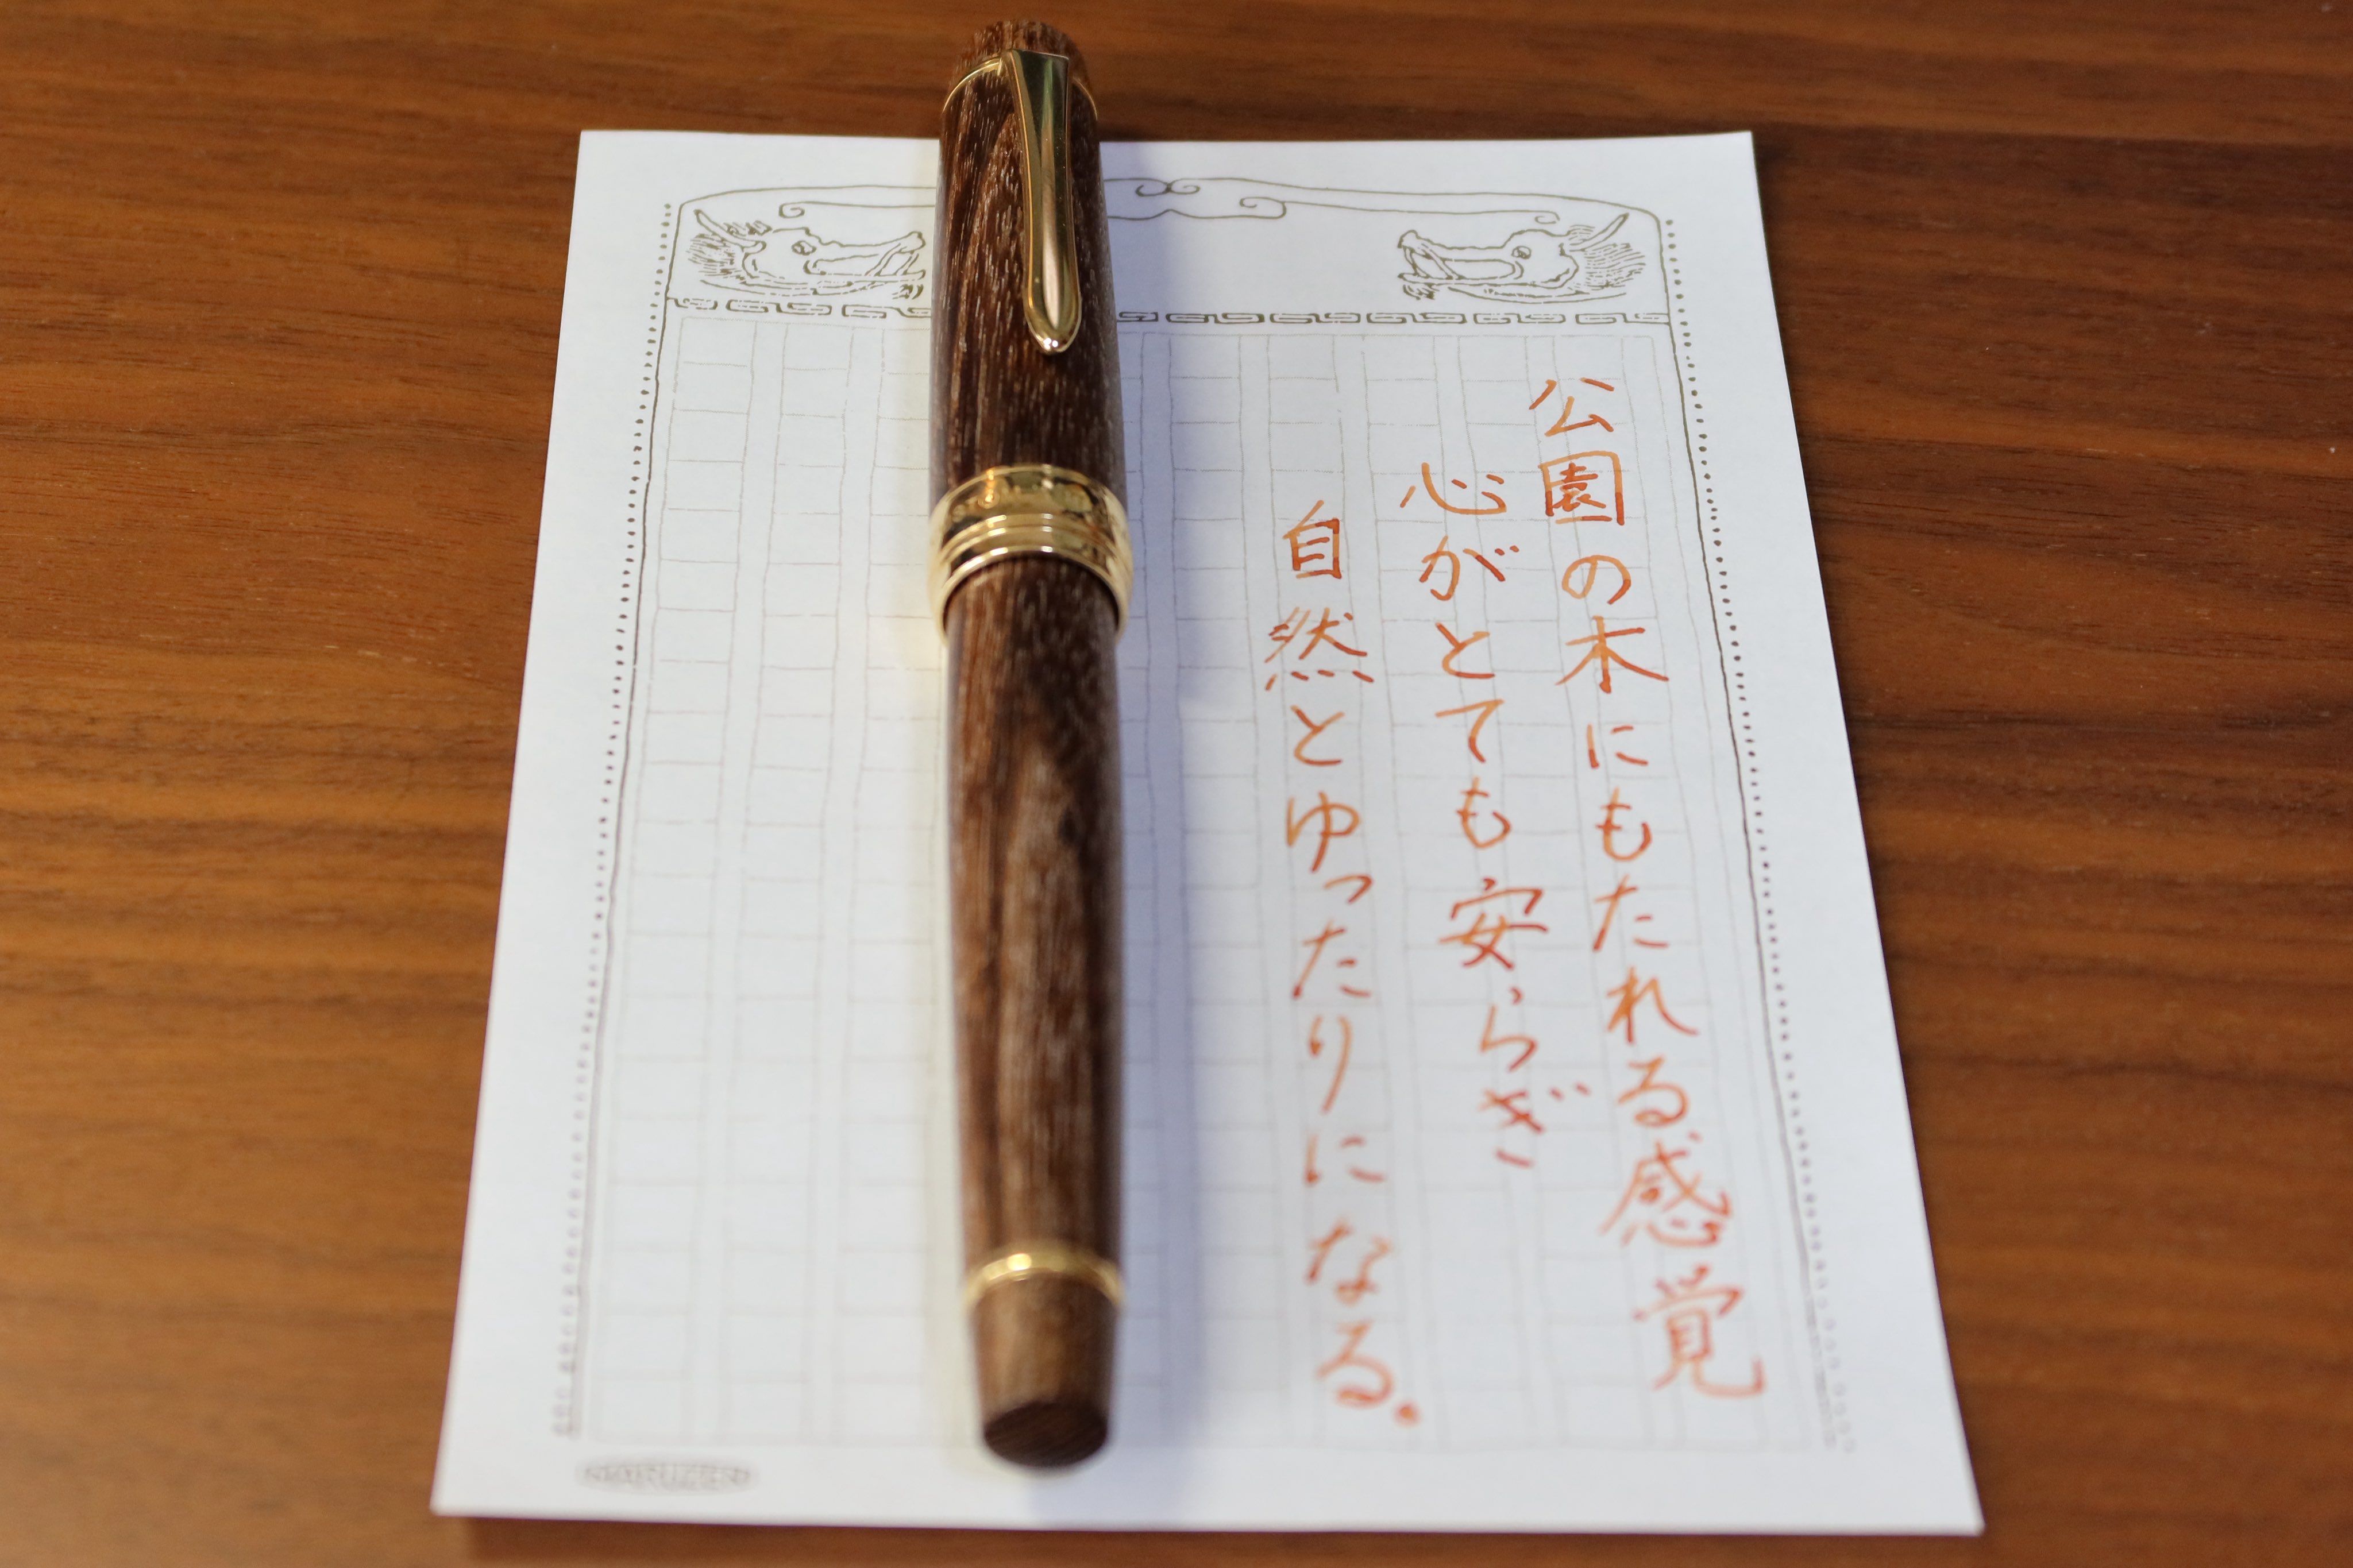 公園の木にもたれる感覚
心がとても安らぎ
自然とゆったりになる。